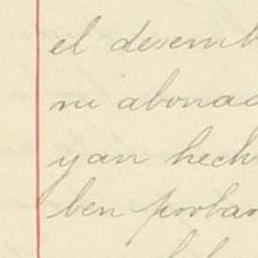 el desemb
ni abonad
yan hech
ben probar